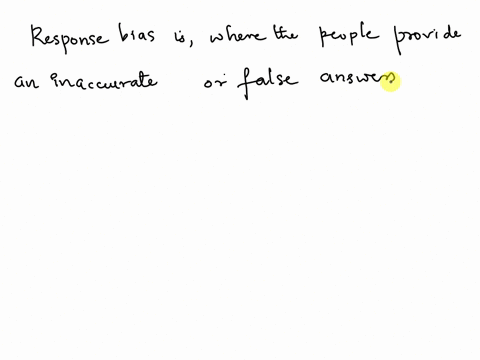 Response bias is, where the people provide
an inaccurate or false answers